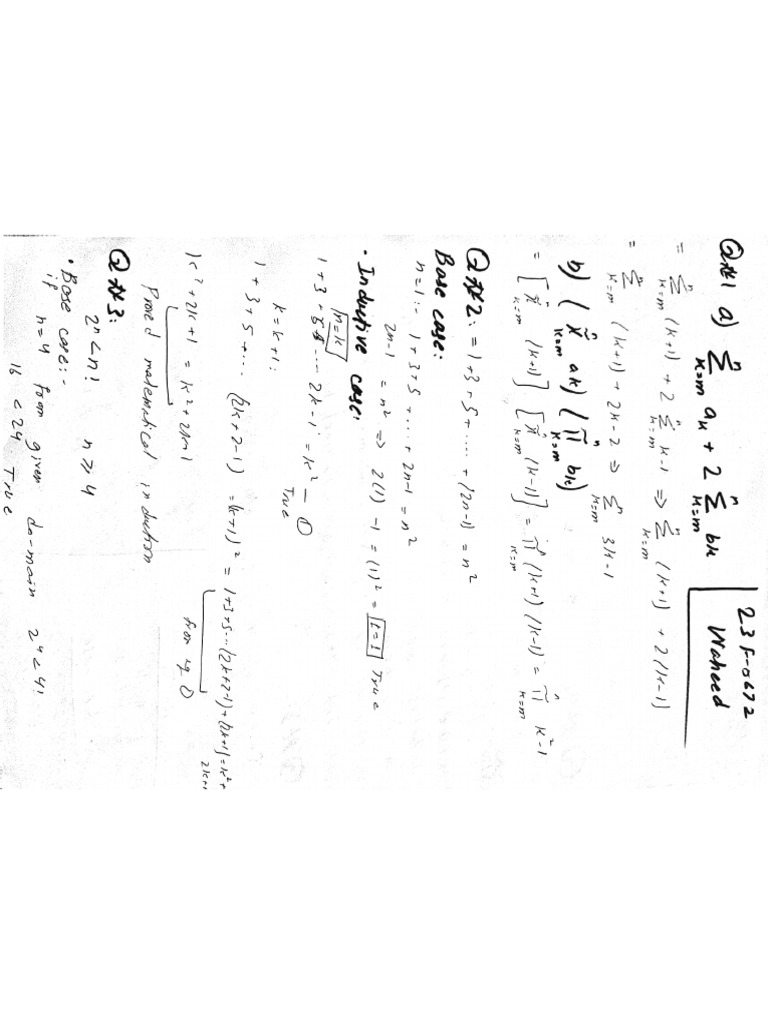 23F-0672
Waheed
Q#1 a) n Σ k=m ak + 2 n Σ k=m bk
= n Σ k=m (k+1) + 2 n Σ k=m k-1 ⇒ n Σ k=m (k+1) + 2(k-1)
= n Σ k=m (k+1) + 2k-2 ⇒ n Σ k=m 3k-1
b) ( n π k=m ak) ( n π k=m bk)
= [ n π k=m (k+1)] [ n π k=m (k-1)] = n π k=m (k+1) (k-1) = n π k=m k²-1
Q#2: = 1+3+5+....+(2n-1) = n²
Base case:
n=1:- 1+3+5+...+2n-1 = n²
2n-1 = n² ⇒ 2(1) -1 = (1)² = 1=1 True
• Inductive case:
n=k
1+3+5+.... 2k-1 = k² — ①
True
k=k+1:
1+3+5+... (2k+2-1) = (k+1)² = 1+3+5...(2k+2-1)+(2k+1)=k²+
2k+1
from eq ①
k²+2k+1 = k²+2k+1
Proved mathematical induction
Q#3:
2ⁿ<n! n≥4
• Base case:-
if n=4 from given do-main 2⁴<4!
16 < 24 True